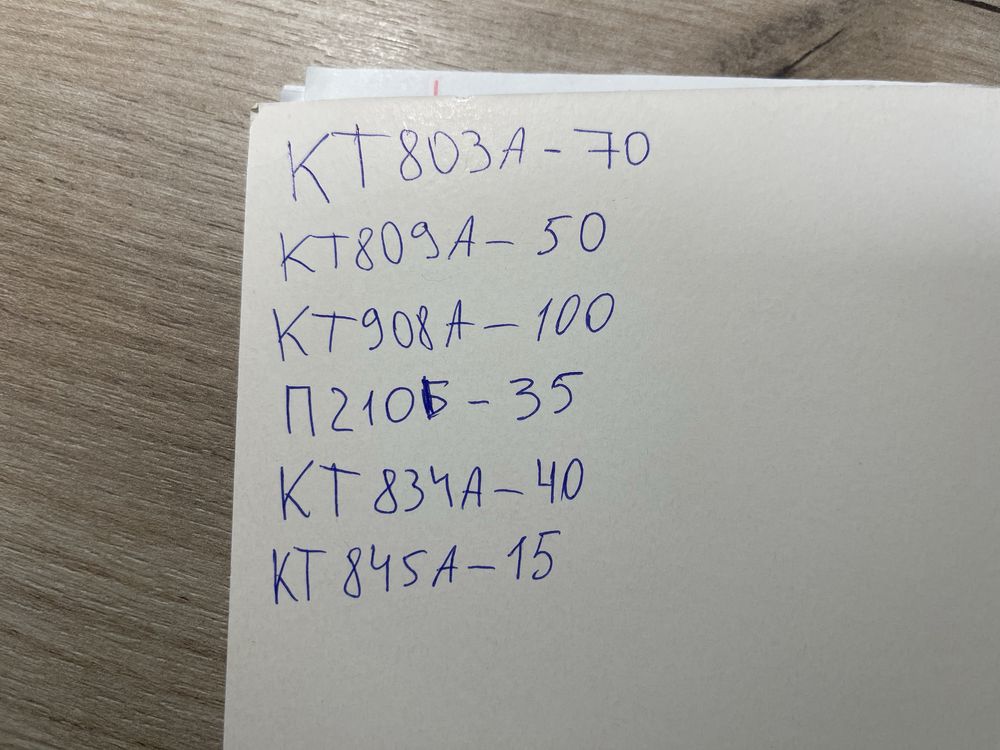 КТ803А - 70
КТ809А - 50
КТ908А - 100
П210Б - 35
КТ 834А - 40
КТ 845А - 15